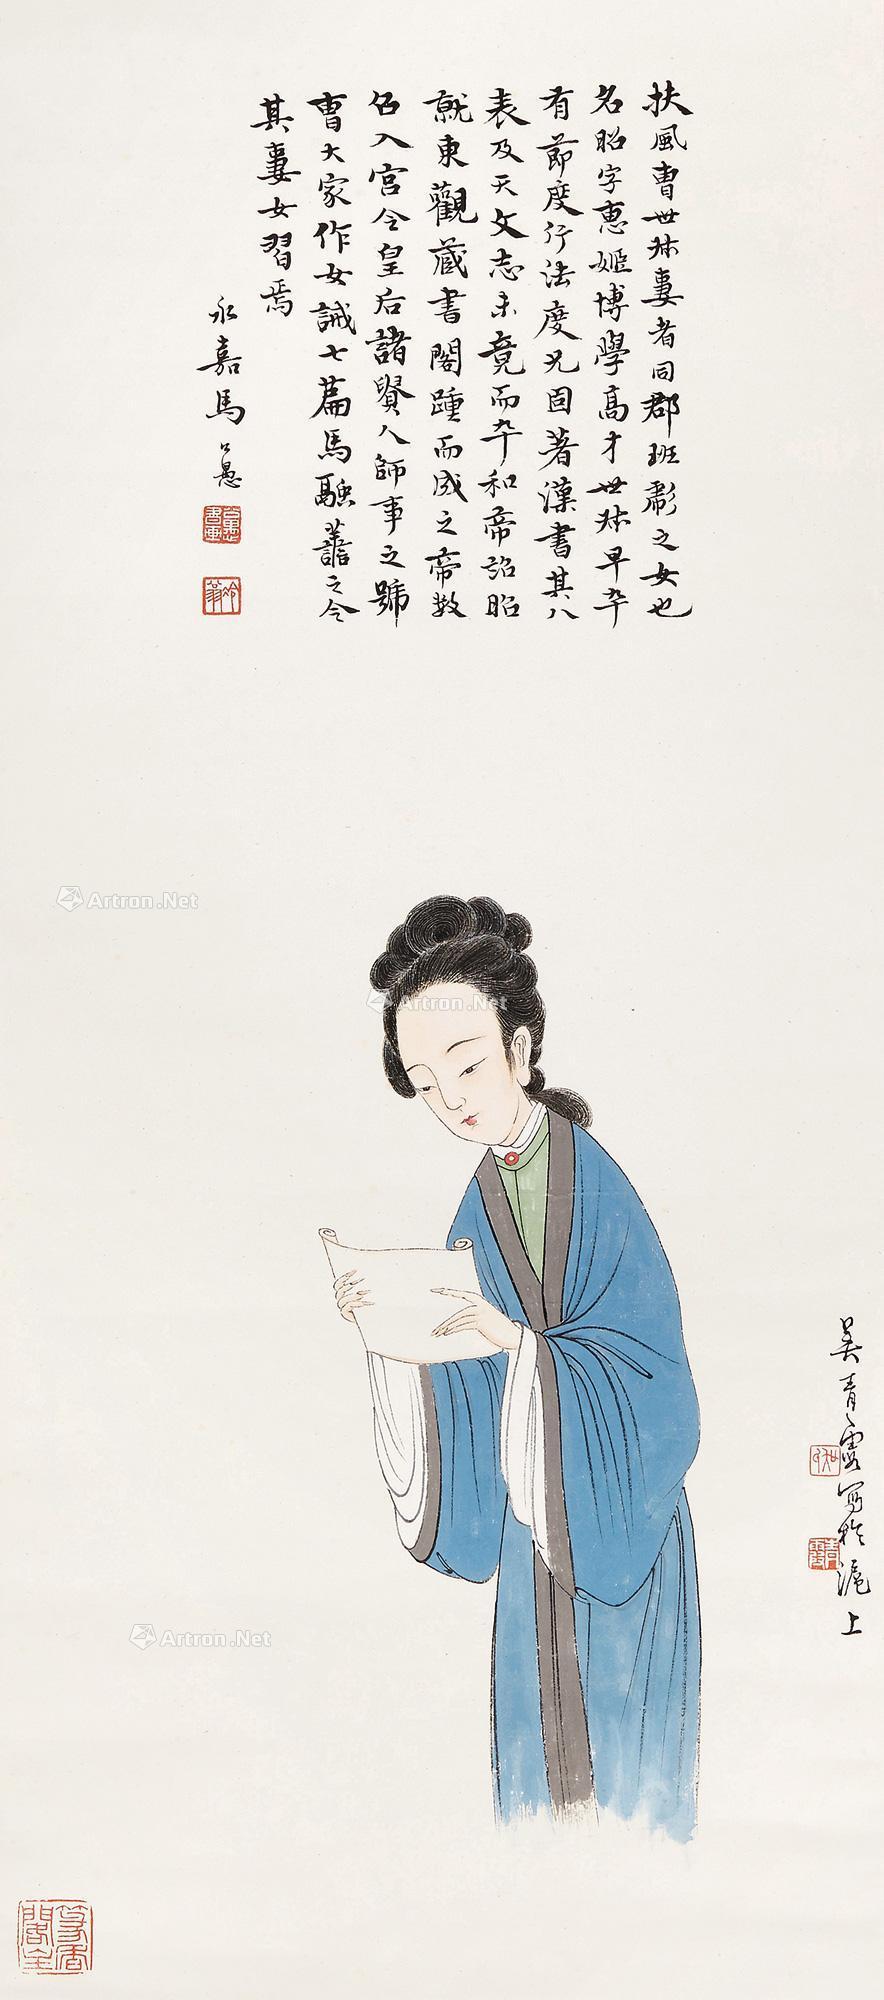 扶風曹世叔妻者同郡班彪之女也
名昭字惠姬博學高才世叔早卒
有節度行法度兄固著漢書其八
表及天文志未竟而卒和帝詔昭
就東觀藏書閣踵而成之帝數
召入宮令皇后諸貴人師事之號
曹大家作女誡七篇馬融善之令
其妻女習焉
永嘉馬公愚
吳青霞寫於滬上
青霞
Artron.Net
Artron.Net
Artron.Net